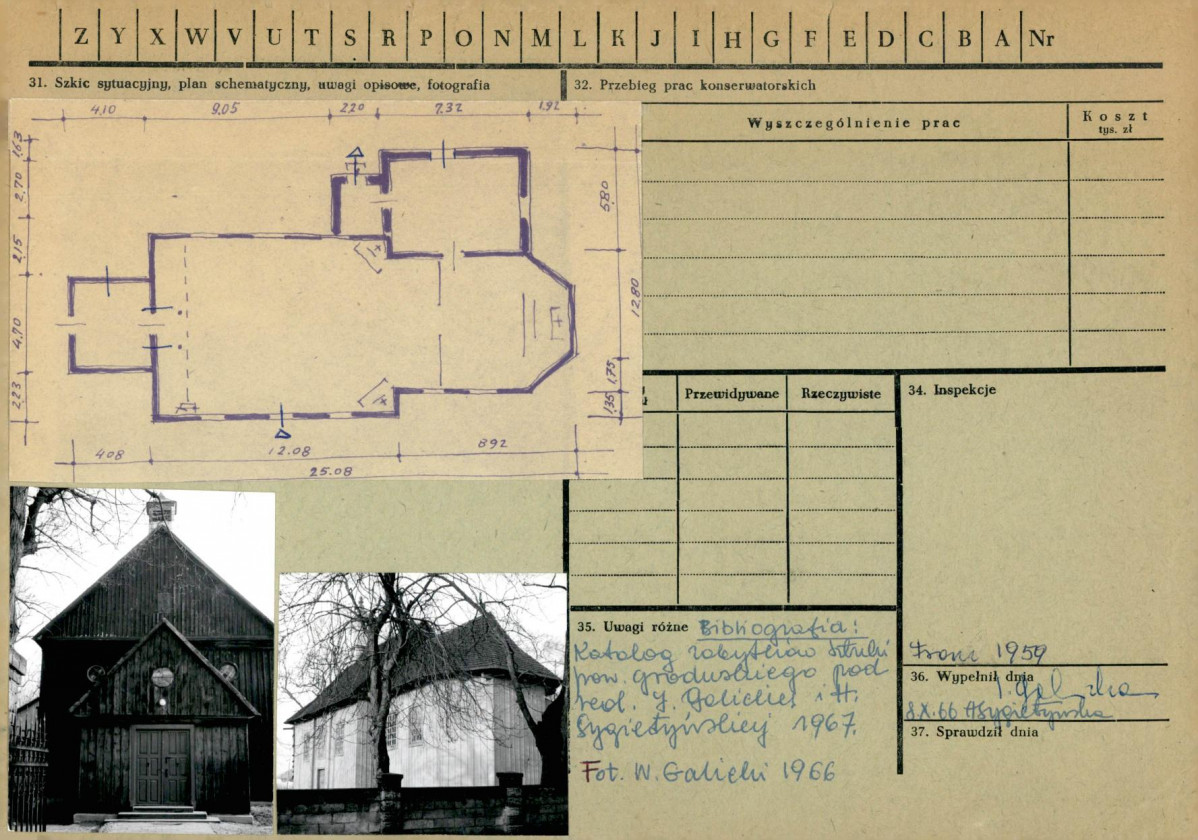 Z Y X W V U T S R P O N M L K J I H G F E D C B A Nr
31. Szkic sytuacyjny, plan schematyczny, uwagi opisowe, fotografia
32. Przebieg prac konserwatorskich
4.10 9.05 2.20 7.32 1.92
Wyszczególnienie prac
Koszt
tys. zł
1.63
2.70
2.15
4.70
2.23
5.80
12.80
1.75
1.35
4.08 12.08 8.92
25.08
Przewidywane
Rzeczywiste
34. Inspekcje
35. Uwagi różne Bibliografia:
Katalog zabytków sztuki
pow. grodziskiego pod
red. I. Galickiej i H.
Sygietyńskiej 1967.
Fot. W. Galicki 1966
1959
36. Wypełnił dnia
8.X.66 HSygietyńska
37. Sprawdził dnia